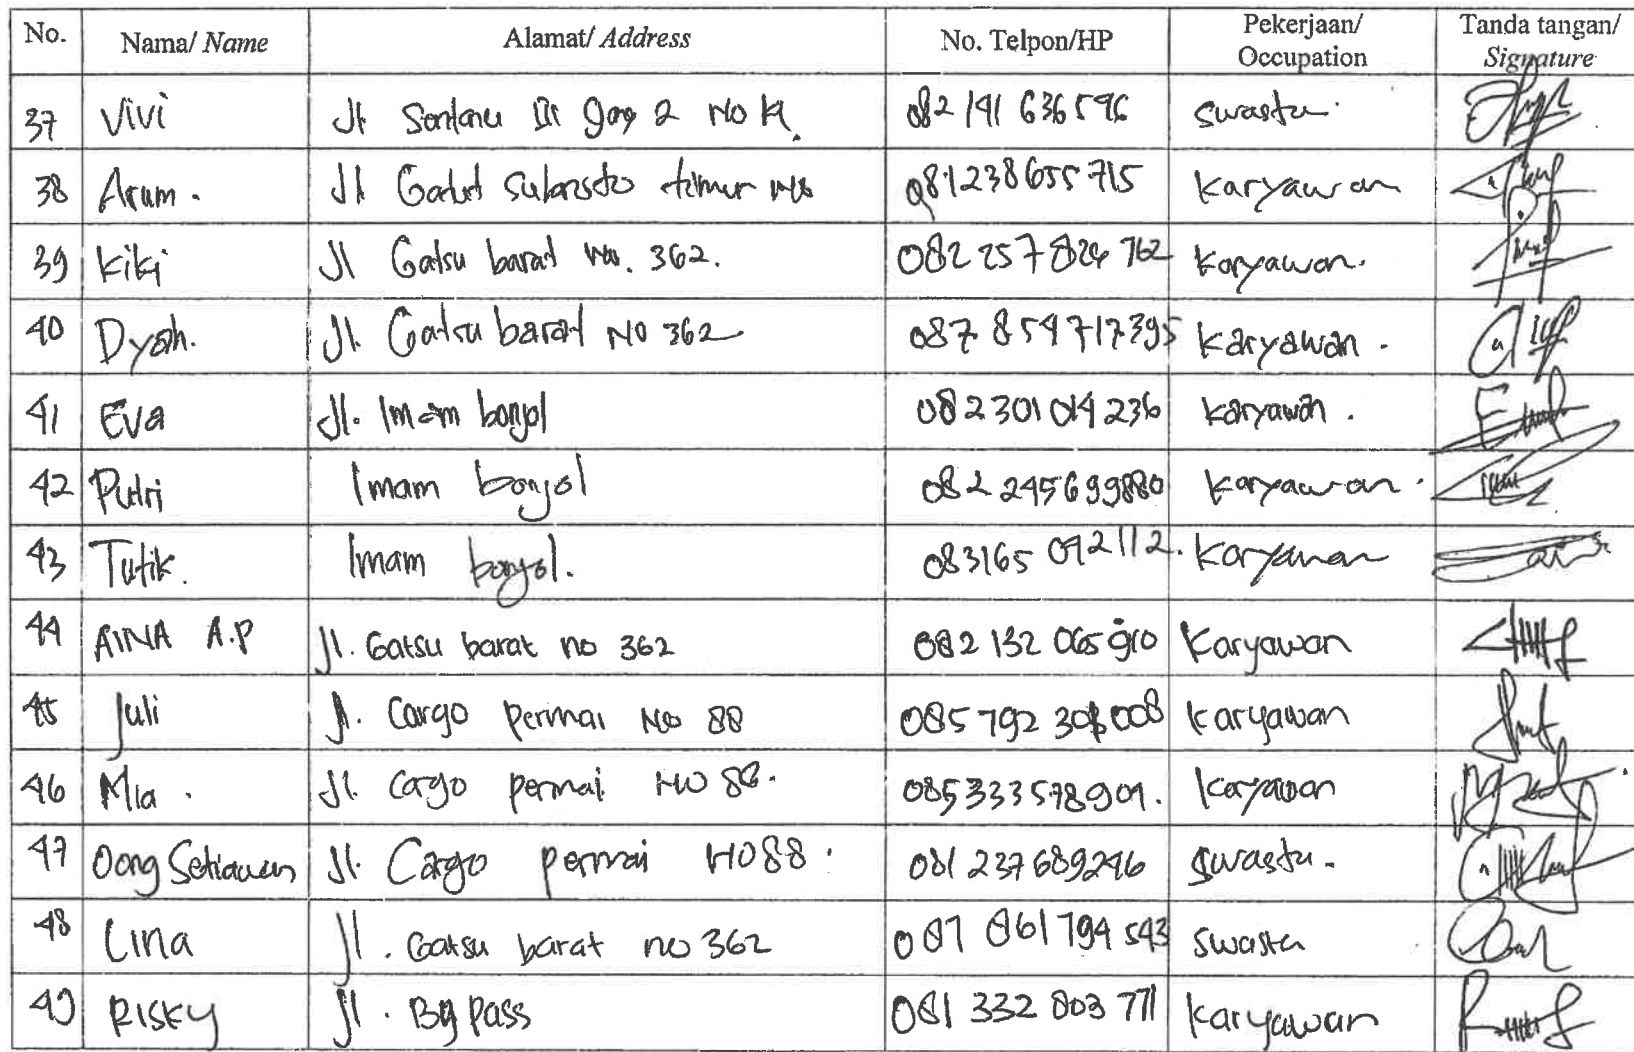 No. Nama/ Name Alamat/ Address No. Telpon/HP Pekerjaan/ Occupation Tanda tangan/ Signature
37 Vivi Jl No 082 141 636 596 Swasta.
38 Arum. Jl Gatot Subroto timur 081238655715 Karyawan
39 Kiki Jl Gatsu barat No. 362. 082 257 826 762 Karyawan.
40 Dyah. Jl. Gatsu barat No 362 087 854 717395 Karyawan.
41 Eva Jl. Imam bonjol 082301014236 Karyawan.
42 Putri Imam bonjol 082 245699880 Karyawan.
43 Tutik. Imam bonjol. 083165 092112. Karyawan
44 AINA A.P Jl. Gatsu barat no 362 082 132 065 910 Karyawan
45 Juli Jl. Cargo Permai No 88 085 792 008 Karyawan
46 Mia. Jl. Cargo permai NO 88. 085333578901. Karyawan
47 Oong Setiawan Jl. Cargo permai NO 88. 081 237689246 Swasta.
48 Lina Jl. Gatsu barat no 362 087 861 794 543 Swasta
49 RISKY Jl. By Pass 081 332 803 771 Karyawan